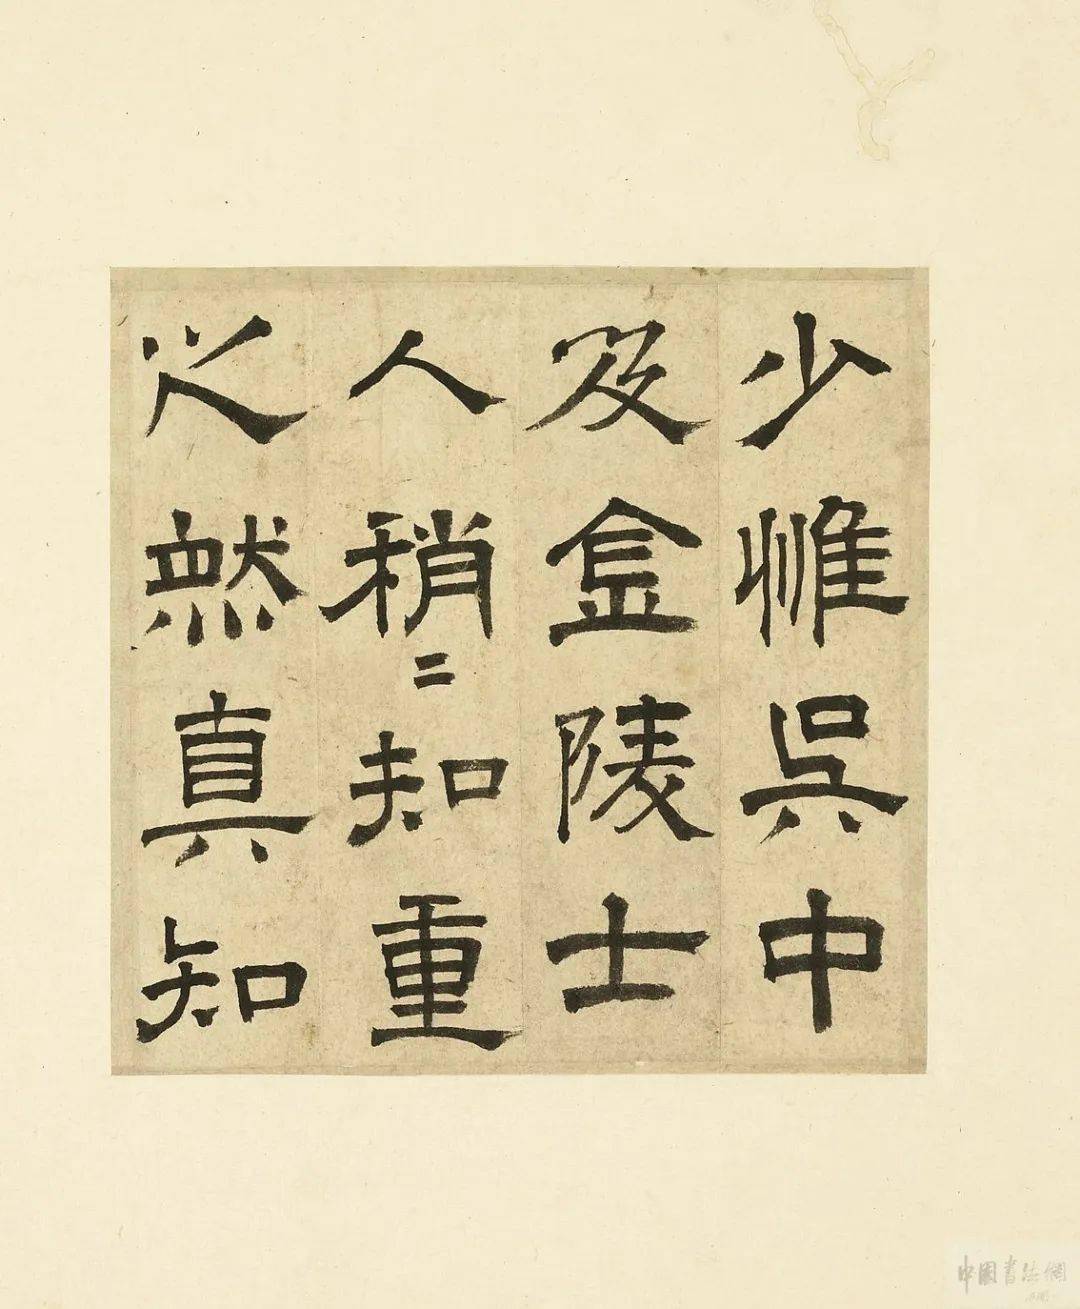 少惟吳中
及金陵士
人稍〻知重
之然真知
中国书法網